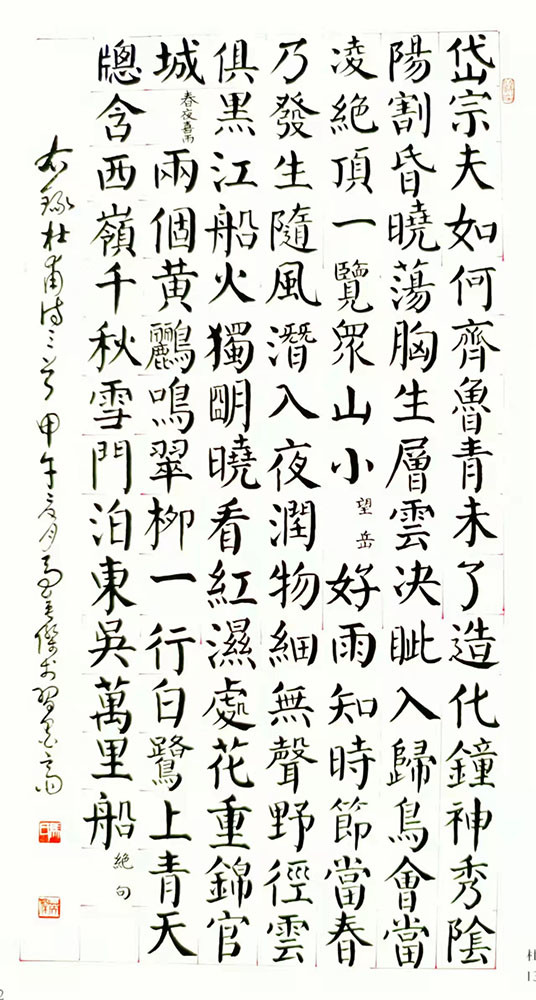 岱宗夫如何齊魯青未了造化鐘神秀陰
陽割昏曉蕩胸生層雲决眦入歸鳥會當
凌絶頂一覽眾山小望岳好雨知時節當春
乃發生隨風潛入夜潤物細無聲野徑雲
俱黑江船火獨明曉看紅濕處花重錦官
城春夜喜雨兩個黃鸝鳴翠柳一行白鷺上青天
牕含西嶺千秋雪門泊東吳萬里船絶句
右録杜甫詩三首甲午夏月馬傑於習墨齋